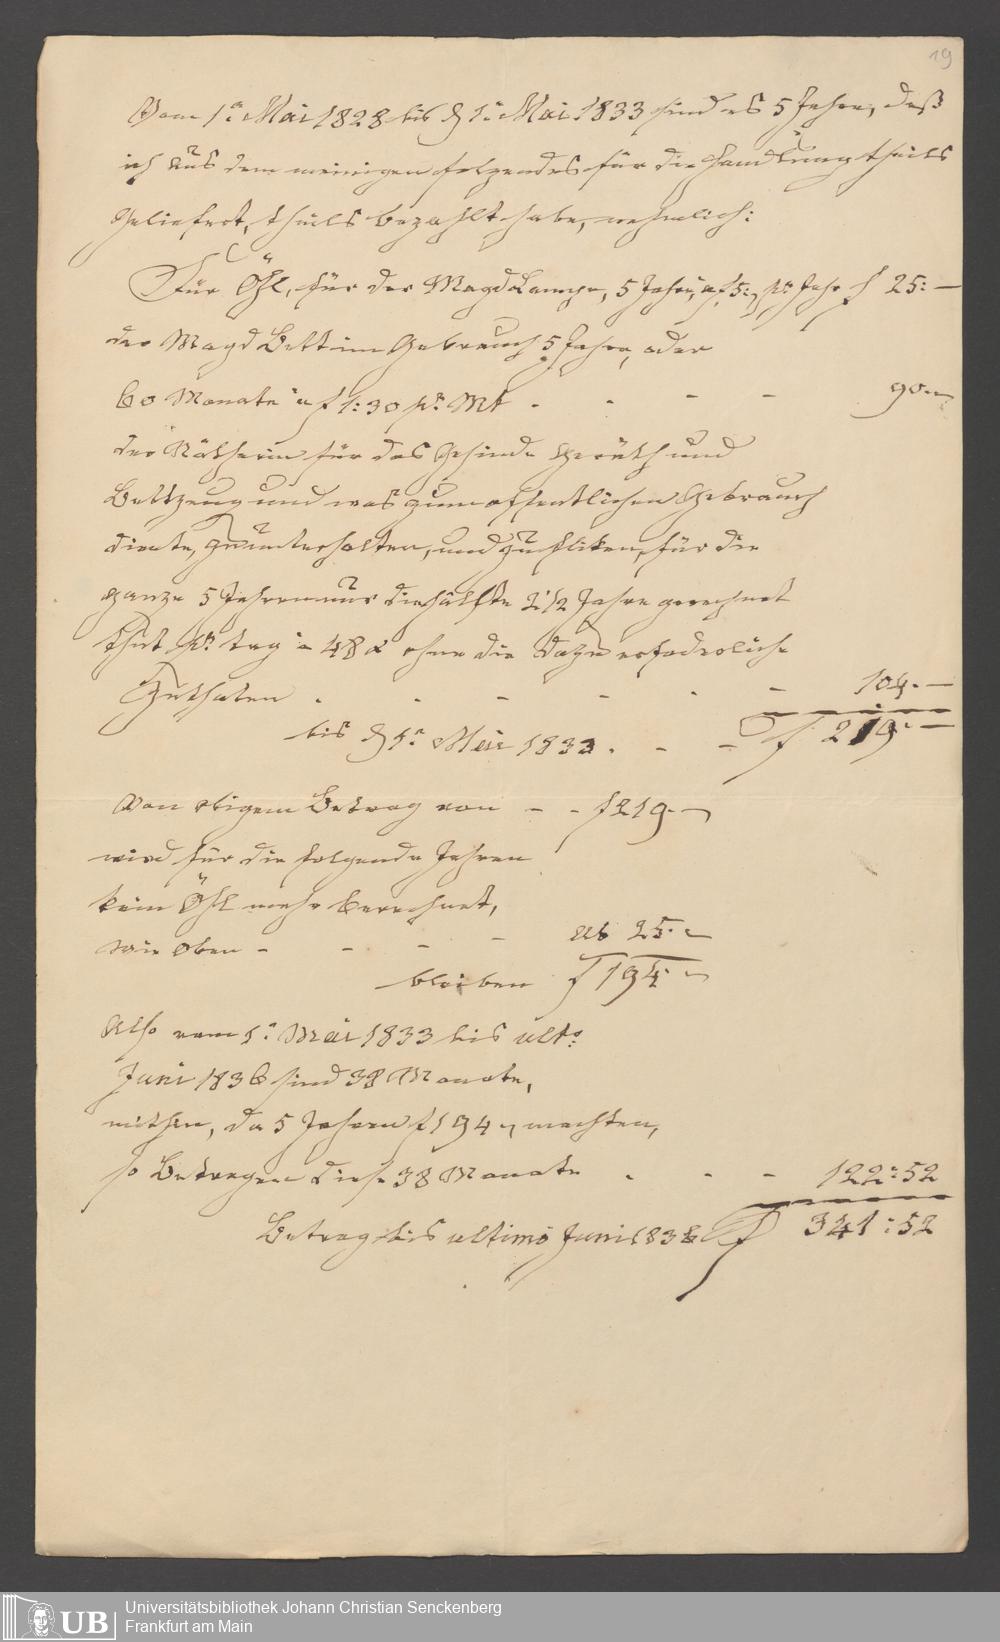 19
Vom 1n Mai 1828 bis d 1n Mai 1833 sind es 5 Jahre, daß
ich aus dem meinigen folgendes für die Handlung theils
geliefert, theils bezahlt habe, nehmlich:
Für Öhl, für der Magd Lampe, 5 Jahre, a f 5:, pr Jahr f 25:—
der Magd Bett im Gebrauch 5 Jahre, oder
60 Monate a f 1:30 pr Mt - - - - 90.—
der Nätherin für das Gesinde Geräth und
Bettzeug und was zum öffentlichen Gebrauch
diente, zu unterhalten, und zu fliken, für die
ganze 5 Jahren nur die hälfte 2 1/2 Jahre gerechnet
thut pr tag a 48 x ohne die dazu erfoderliche
Zuthaten - - - - - - 104.—
bis d 1n Mai 1833. - - f 219.—
Von obigem Betrag von - - f 219.—
wird für die folgende Jahren
kein Öhl mehr berechnet,
wie oben - - - - ab 25.—
bleiben f 194.—
Also vom 1n Mai 1833 bis ulto
Juni 1836 sind 38 Monate,
mithin, da 5 Jahren f 194 machten,
so Betragen diese 38 Monate - - - 122:52
Betrag bis ultimo Juni 1836 f 341:52
UB Universitätsbibliothek Johann Christian Senckenberg
Frankfurt am Main